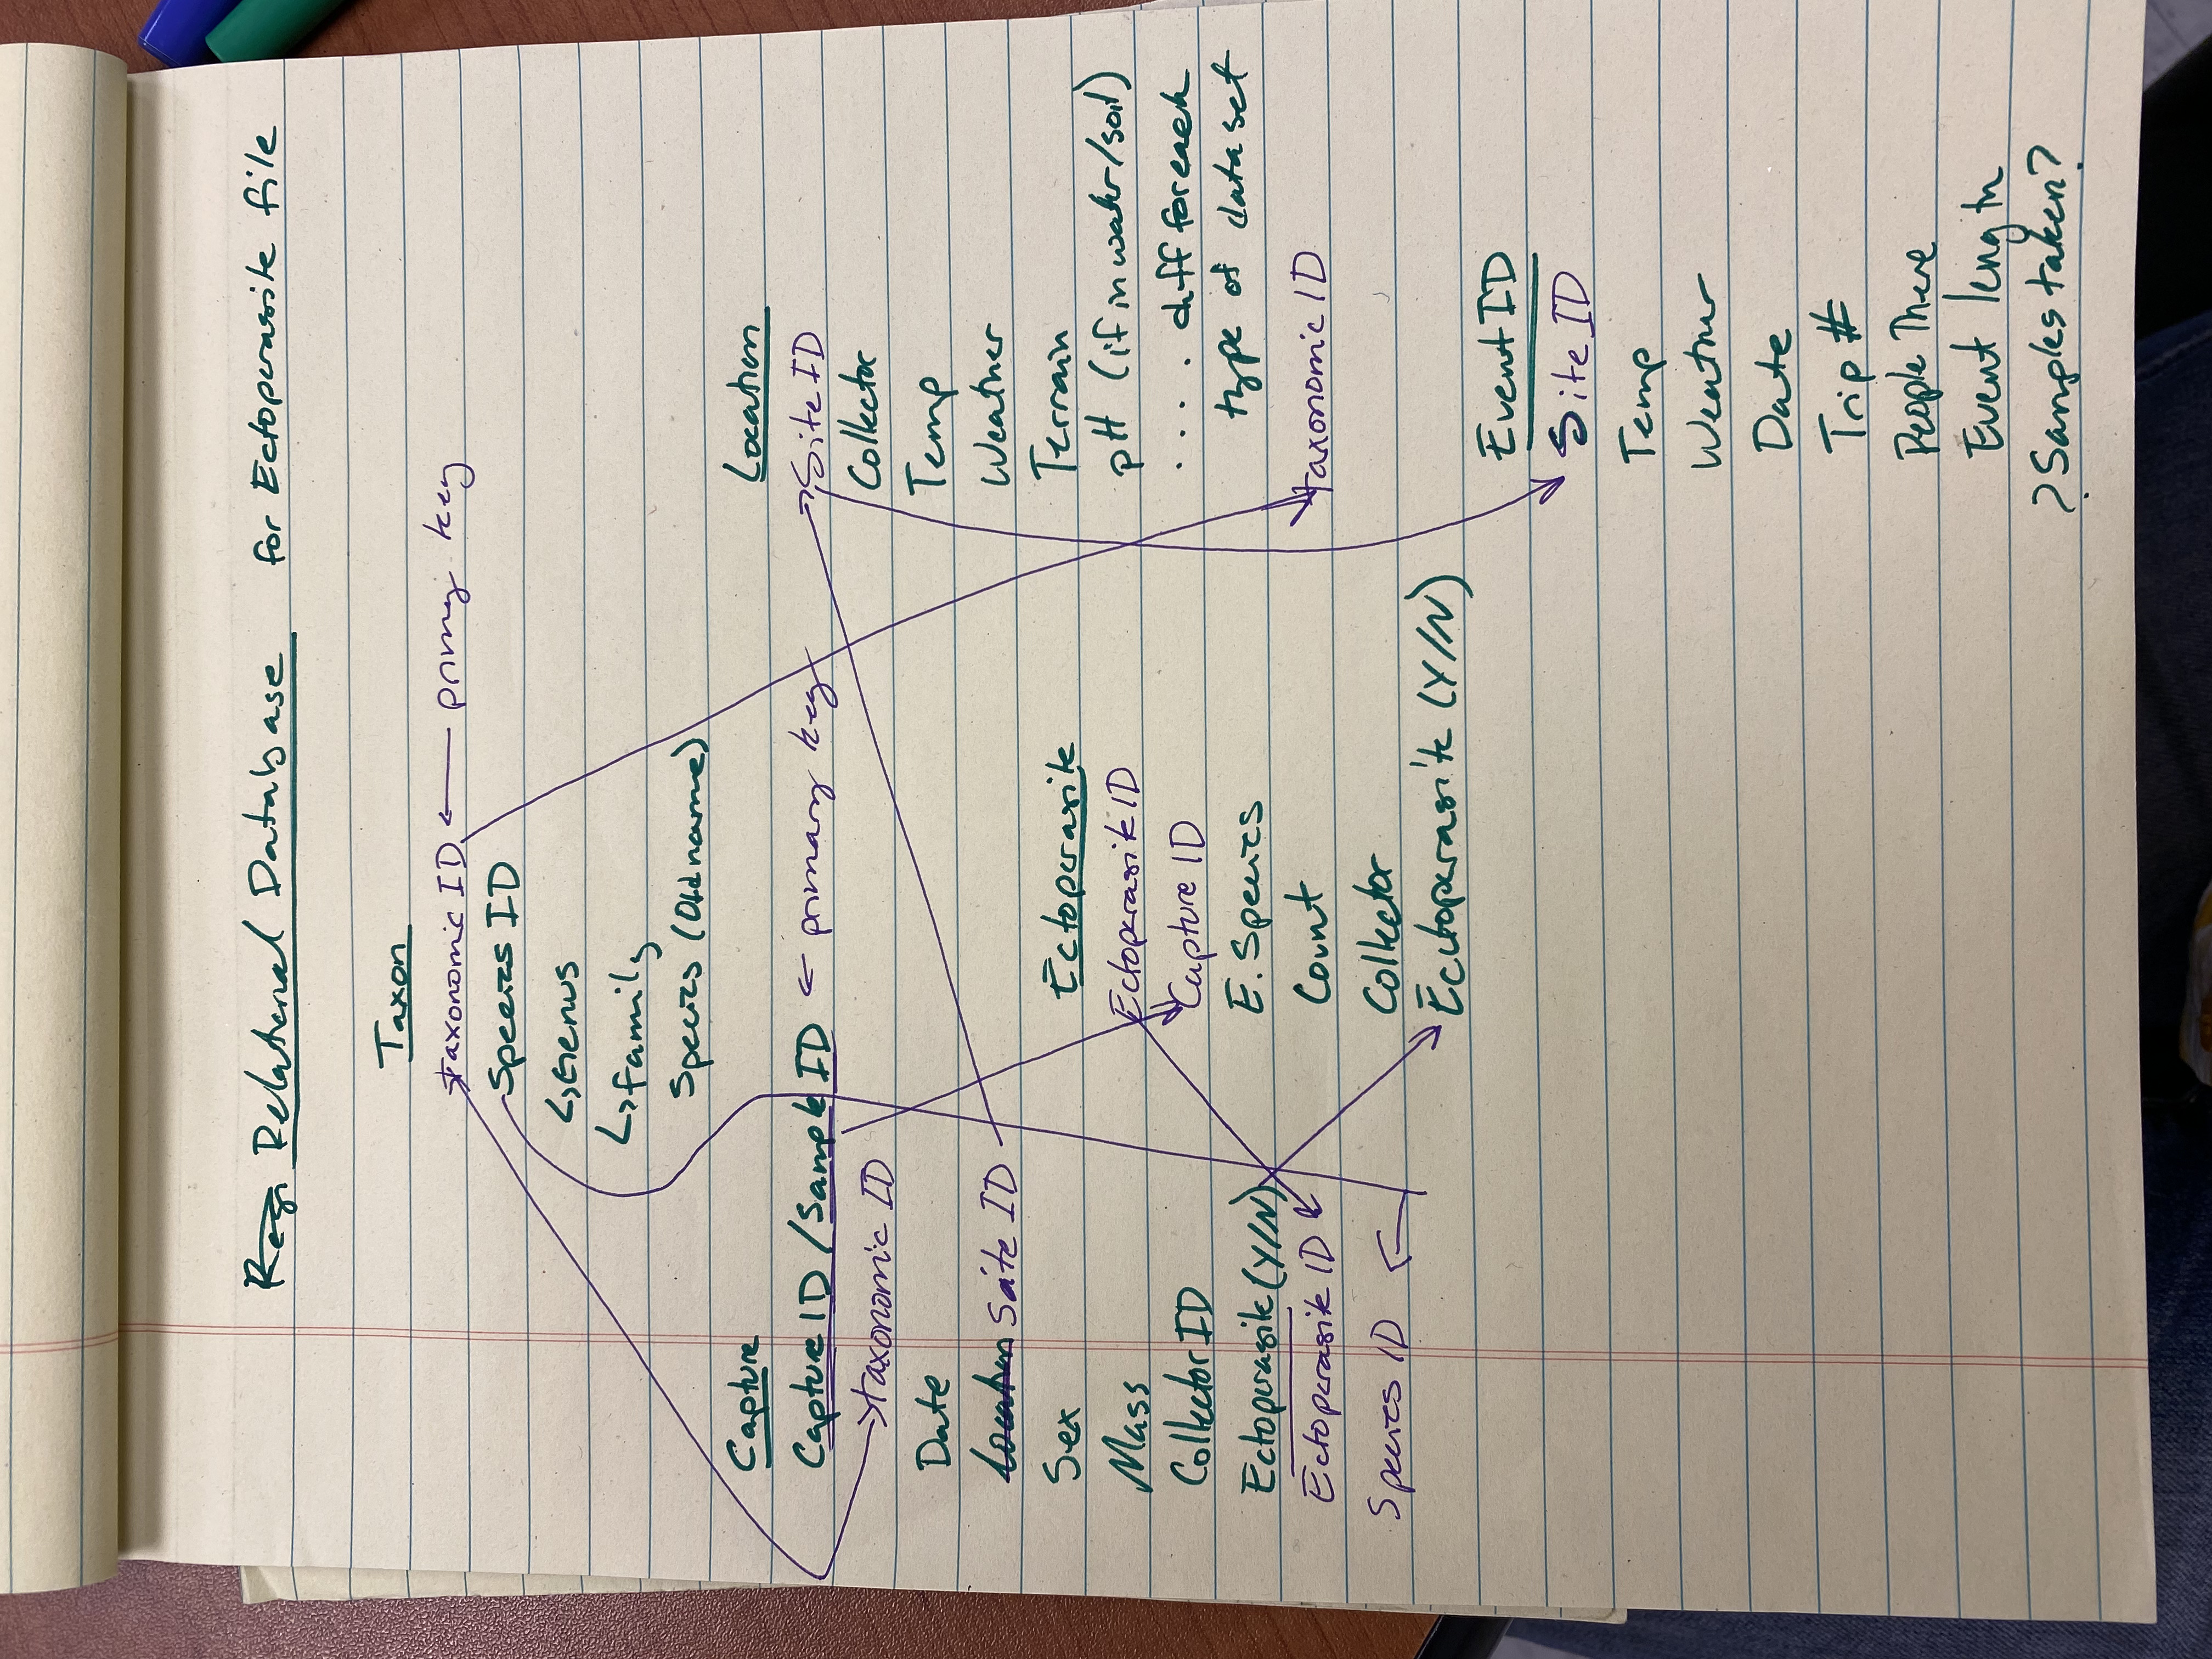 Relational Database for Ectoparasite file
Taxon
taxonomic ID ← primary key
Species ID
↳ Genus
↳ family
Species (Old name)
Capture
Capture ID / Sample ID ← primary key
taxonomic ID
Date
Location Site ID
Sex
Mass
Collector ID
Ectoparasite (Y/N)
Ectoparasite ID
Species ID
Ectoparasite
Ectoparasite ID
Capture ID
E. Species
Count
Collector
Ecctoparasite (Y/N)
Location
Site ID
Collector
Temp
Weather
Terrain
pH (if in water/soil)
..... diff for each
type of data set
taxonomic ID
Event ID
Site ID
Temp
Weather
Date
Trip #
People There
Event length
? Samples taken?